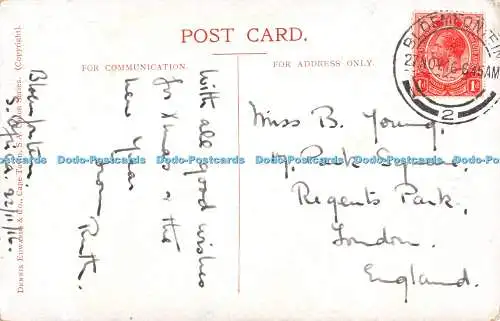 POST CARD.
FOR COMMUNICATION.
FOR ADDRESS ONLY.
BLOEMFONTEIN
27 NOV 16 - 6 45AM
2
Bloemfontein
S. Africa. 22/11/16.
With all good wishes
for Xmas & the
new Year
from Ruth.
Miss B. Young,
Park Square,
Regents Park,
London.
England.
DENNIS EDWARDS & Co., CAPE TOWN, S.A. (Copyright).
Dodo-Postcards Dodo-Postcards Dodo-Postcards Dodo-Postcards Dodo-Postcards Dodo-Postcards